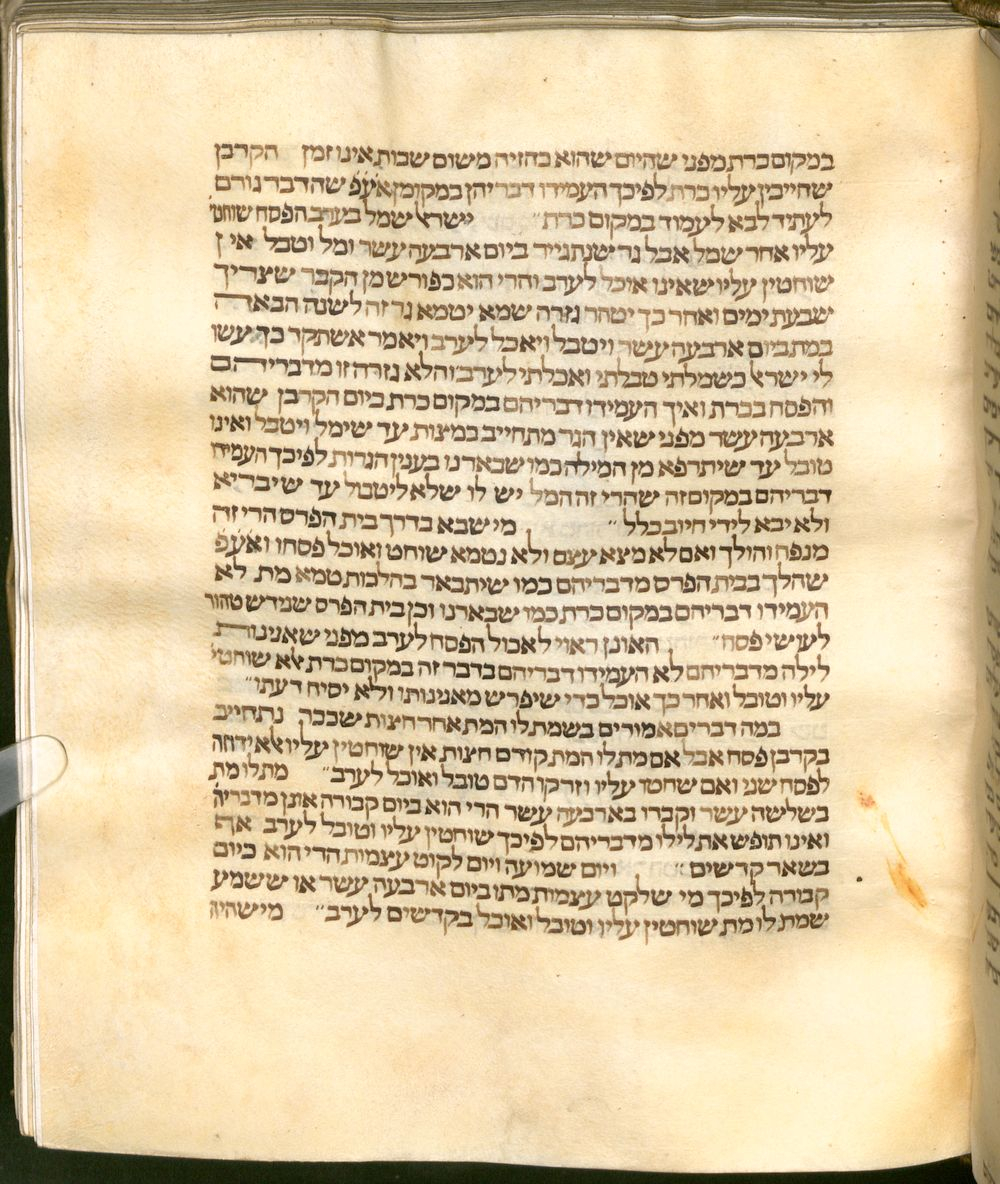 במקום כרת מפני שהיום שהוא בהזיה משום שבות אינו זמן הקרבן
שחייבין עליו כרת לפיכך העמידו דבריהן במקומן אע״פ שהדבר גורם
לעתיד לבא לעמוד במקום כרת״ ישראל שמל בערב הפסח שוחטי
עליו אחר שמל אבל גר שנתגייר ביום ארבעה עשר ומל וטבל אין
שוחטין עליו שאינו אוכל לערב והרי הוא כפורש מן הקבר שצריך
שבעת ימים ואחר כך יטהר גזרה שמא יטמא גר זה לשנה הבאה
במת ביום ארבעה עשר ויטבל ויאכל לערב ויאמר אשתקד כך עשו
לי ישראל כשמלתי טבלתי ואכלתי לערב והלא גזרה זו מדבריהם
והפסח בכרת ואיך העמידו דבריהם במקום כרת ביום הקרבן שהוא
ארבעה עשר מפני שאין הגר מתחייב במצות עד שימל ויטבל ואינו
טובל עד שיתרפא מן המילה כמו שבארנו בענין הגרות לפיכך העמידו
דבריהם במקום זה שהרי זה המל יש לו שלא ליטבול עד שיבריא
ולא יבא לידי חיוב כלל״ מי שבא בדרך בית הפרס הרי זה
מנפח והולך ואם לא מצא עצם ולא נטמא שוחט ואוכל פסחו ואע״פ
שהלך בבית הפרס מדבריהם כמו שיתבאר בהלכות טמא מת לא
העמידו דבריהם במקום כרת כמו שבארנו וכן בית הפרס שנידש טהור
לעושי פסח״ האונן ראוי לאכול הפסח לערב מפני שאנינות
לילה מדבריהם לא העמידו דבריהם בדבר זה במקום כרת אלא שוחטי
עליו וטובל ואחר כך אוכל כדי שיפרש מאנינותו ולא יסיח דעתו״
במה דברים אמורים בשמת לו המת אחר חצות שכבר נתחייב
בקרבן פסח אבל אם מת לו המת קודם חצות אין שוחטין עליו אלא ידחה
לפסח שני ואם שחטו עליו וזרקו הדם טובל ואוכל לערב״ מת לו מת
בשלשה עשר וקברו בארבעה עשר הרי הוא ביום קבורה אונן מדבריה
ואינו תופש את לילו מדבריהם לפיכך שוחטין עליו וטובל לערב אף
בשאר קדשים״ ויום שמועה ויום לקוט עצמות הרי הוא כיום
קבורה לפיכך מי שלקט עצמות מתו ביום ארבעה עשר או ששמע
שמת לו מת שוחטין עליו וטובל ואוכל בקדשים לערב״ מי שהיה